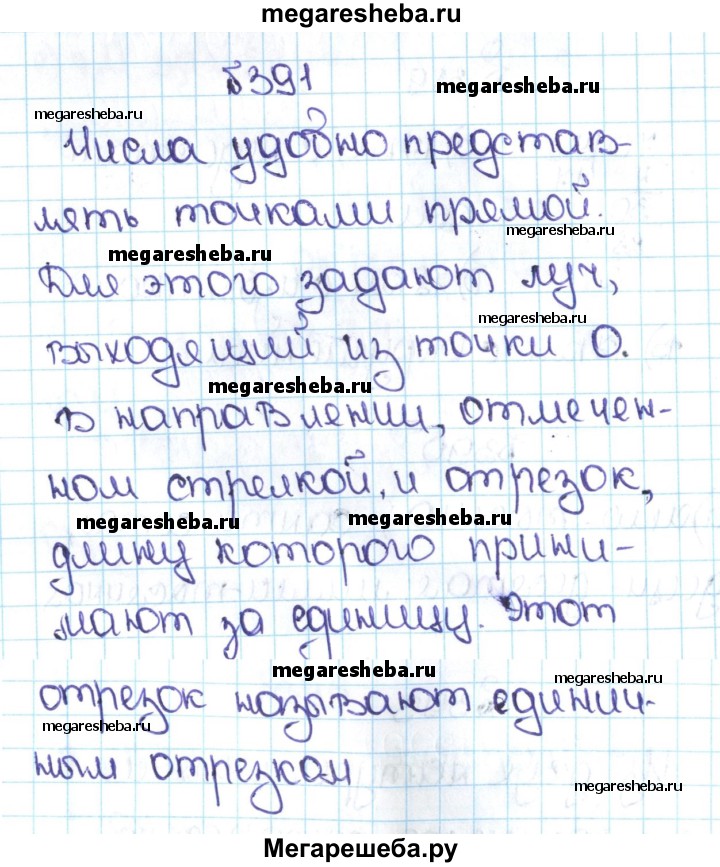 megaresheba.ru
№391
megaresheba.ru
megaresheba.ru
Числа удобно представ-
лять точками прямой.
megaresheba.ru
Для этого задают луч,
megaresheba.ru
выходящий из точки О.
megaresheba.ru
В направлении, отмечен-
ном стрелкой, и отрезок,
megaresheba.ru
megaresheba.ru
длину которого прини-
мают за единицу. Этот
megaresheba.ru
megaresheba.ru
отрезок называют единич-
megaresheba.ru
ным отрезком
megaresheba.ru
Мегарешеба.ру